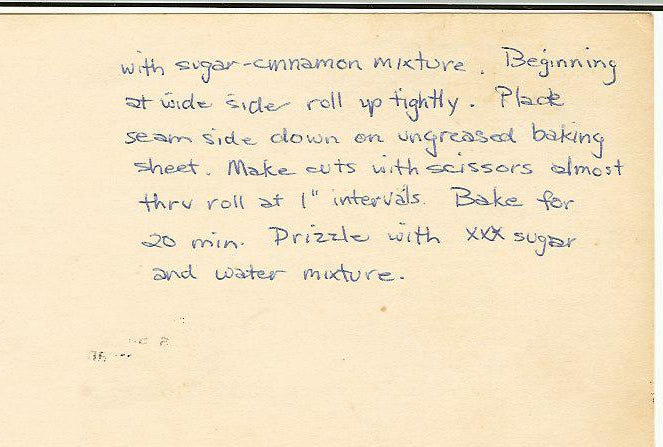 with sugar-cinnamon mixture. Beginning
at wide side roll up tightly. Place
seam side down on ungreased baking
sheet. Make cuts with scissors almost
thru roll at 1" intervals. Bake for
20 min. Drizzle with xxx sugar
and water mixture.